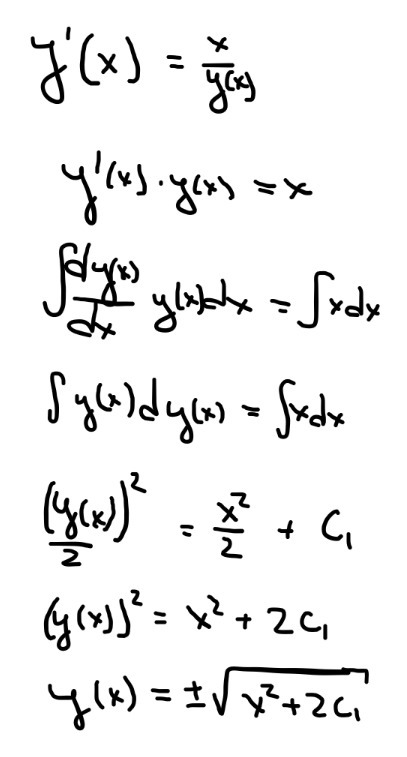 y'(x) = x/y(x)
y'(x) · y(x) = x
∫ dy(x)/dx y(x)dx = ∫xdx
∫ y(x)dy(x) = ∫xdx
(y(x))²/2 = x²/2 + C₁
(y(x))² = x² + 2C₁
y(x) = ±√(x²+2C₁)